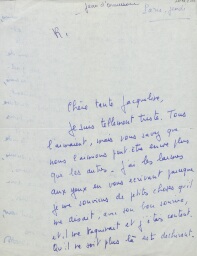 R.
Chère tante Jacqueline,
Je suis tellement triste. Tous
l'aimaient, mais vous savez que
nous l'aimions peut être encore plus
que les autres. J'ai les larmes
aux yeux en vous écrivant parce que
je me souviens de petites choses qu'il
me disait, avec son bon sourire,
et il me taquinait et j'étais content.
Qu'il ne soit plus là est déchirant.